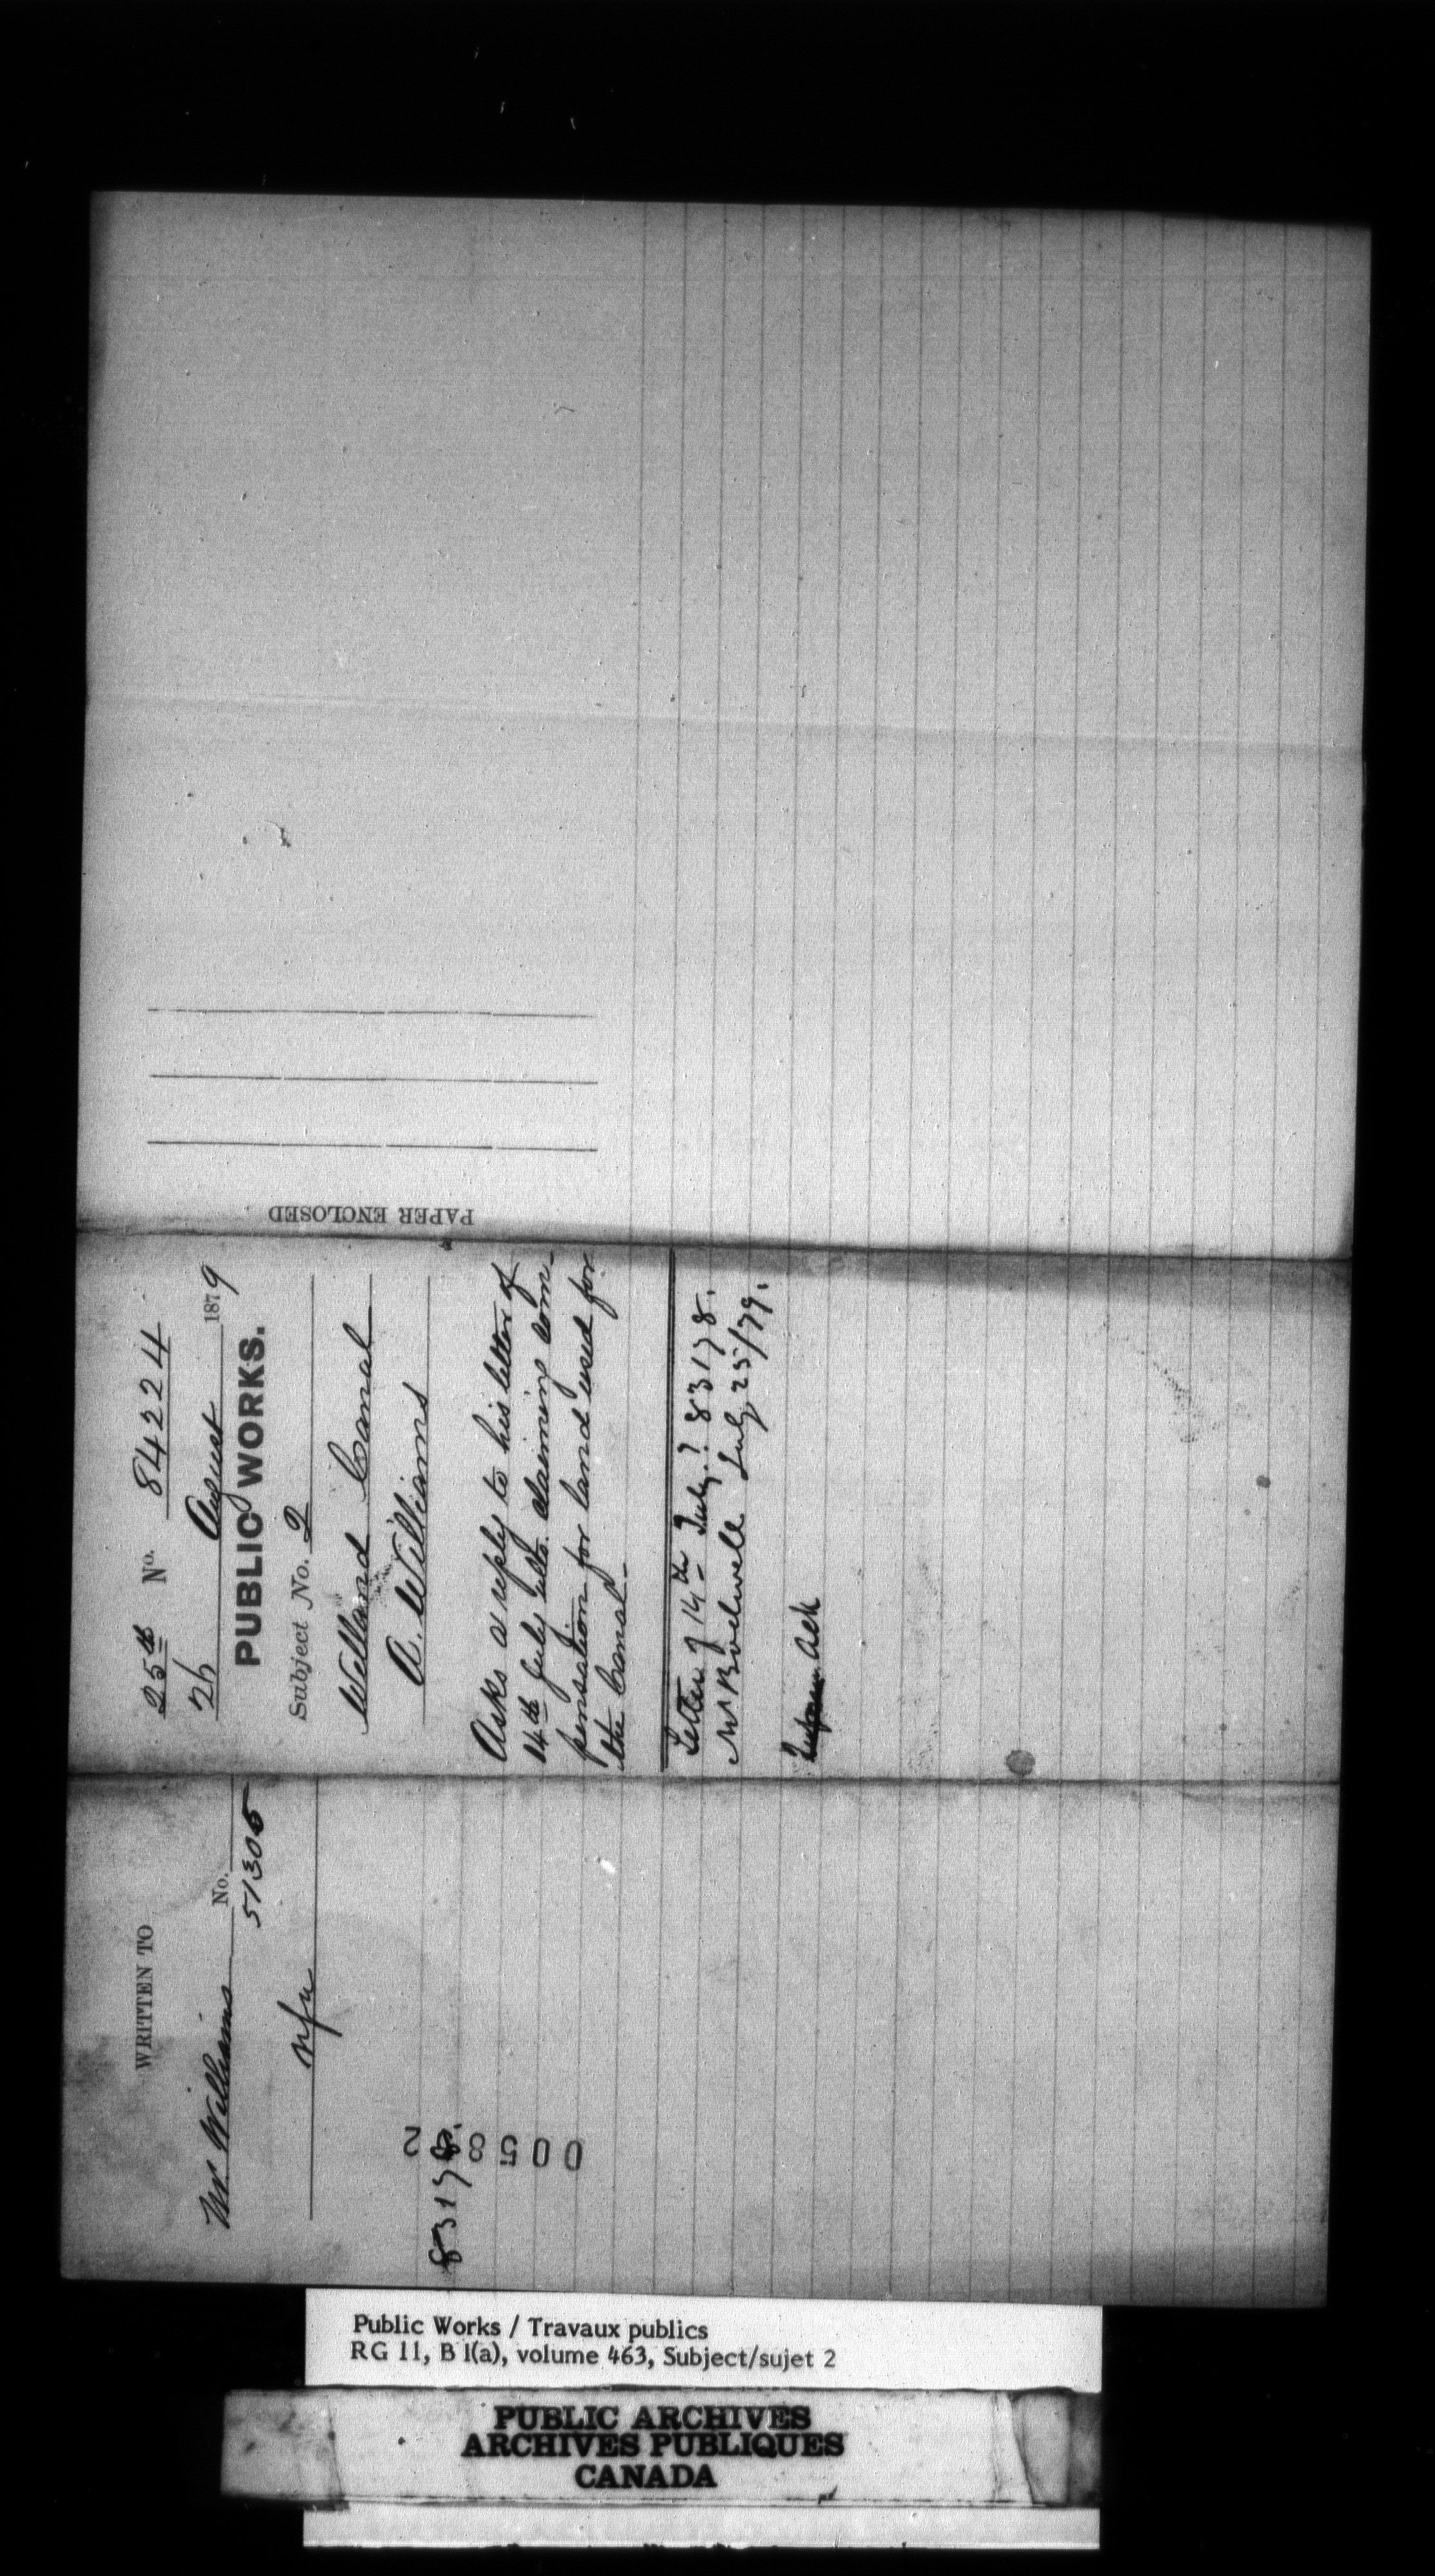 25th No. 84224
26 August 1879
PUBLIC WORKS.
Subject No. 2
Welland Canal
A. Williams
Asks a reply to his letter of
14th July ulto. claiming com-
pensation for land used for
the Canal.
Letter of 14th July? 83178.
Mr Bodwell July 25/79.
Ack
PAPER ENCLOSED
WRITTEN TO
Mr. Williams No.
51305
83178.
005842
Public Works / Travaux publics
RG 11, B 1(a), volume 463, Subject/sujet 2
PUBLIC ARCHIVES
ARCHIVES PUBLIQUES
CANADA